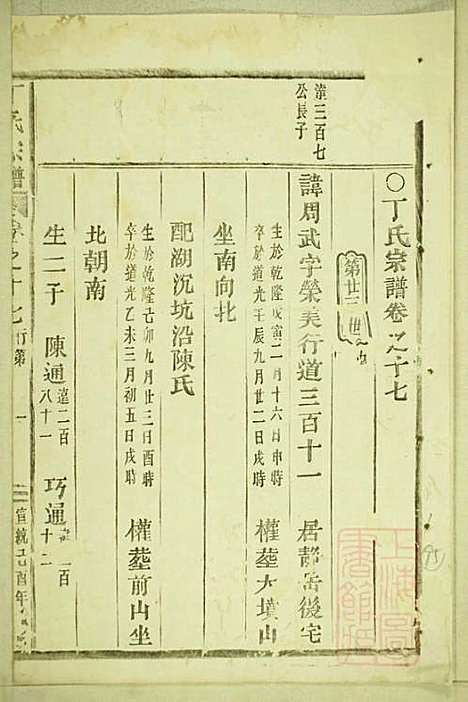 〇丁氏宗譜卷之十七
第廿三世
濱三百七
公長子
諱周武字榮美行道三百十一 居靜岳後宅
生於乾隆戊寅二月十六日申時
卒於道光壬辰九月廿二日戌時
權塟大墳山
坐南向北
配湖沉坑沿陳氏
生於乾隆己卯九月廿三日酉時
卒於道光乙未三月初五日戌時
權塟前山坐
北朝南
生二子 陳通遠二百八十一 巧通 二百十二
丁氏宗譜 卷之十七 行第 一 宣統己酉年
上海圖書館
95